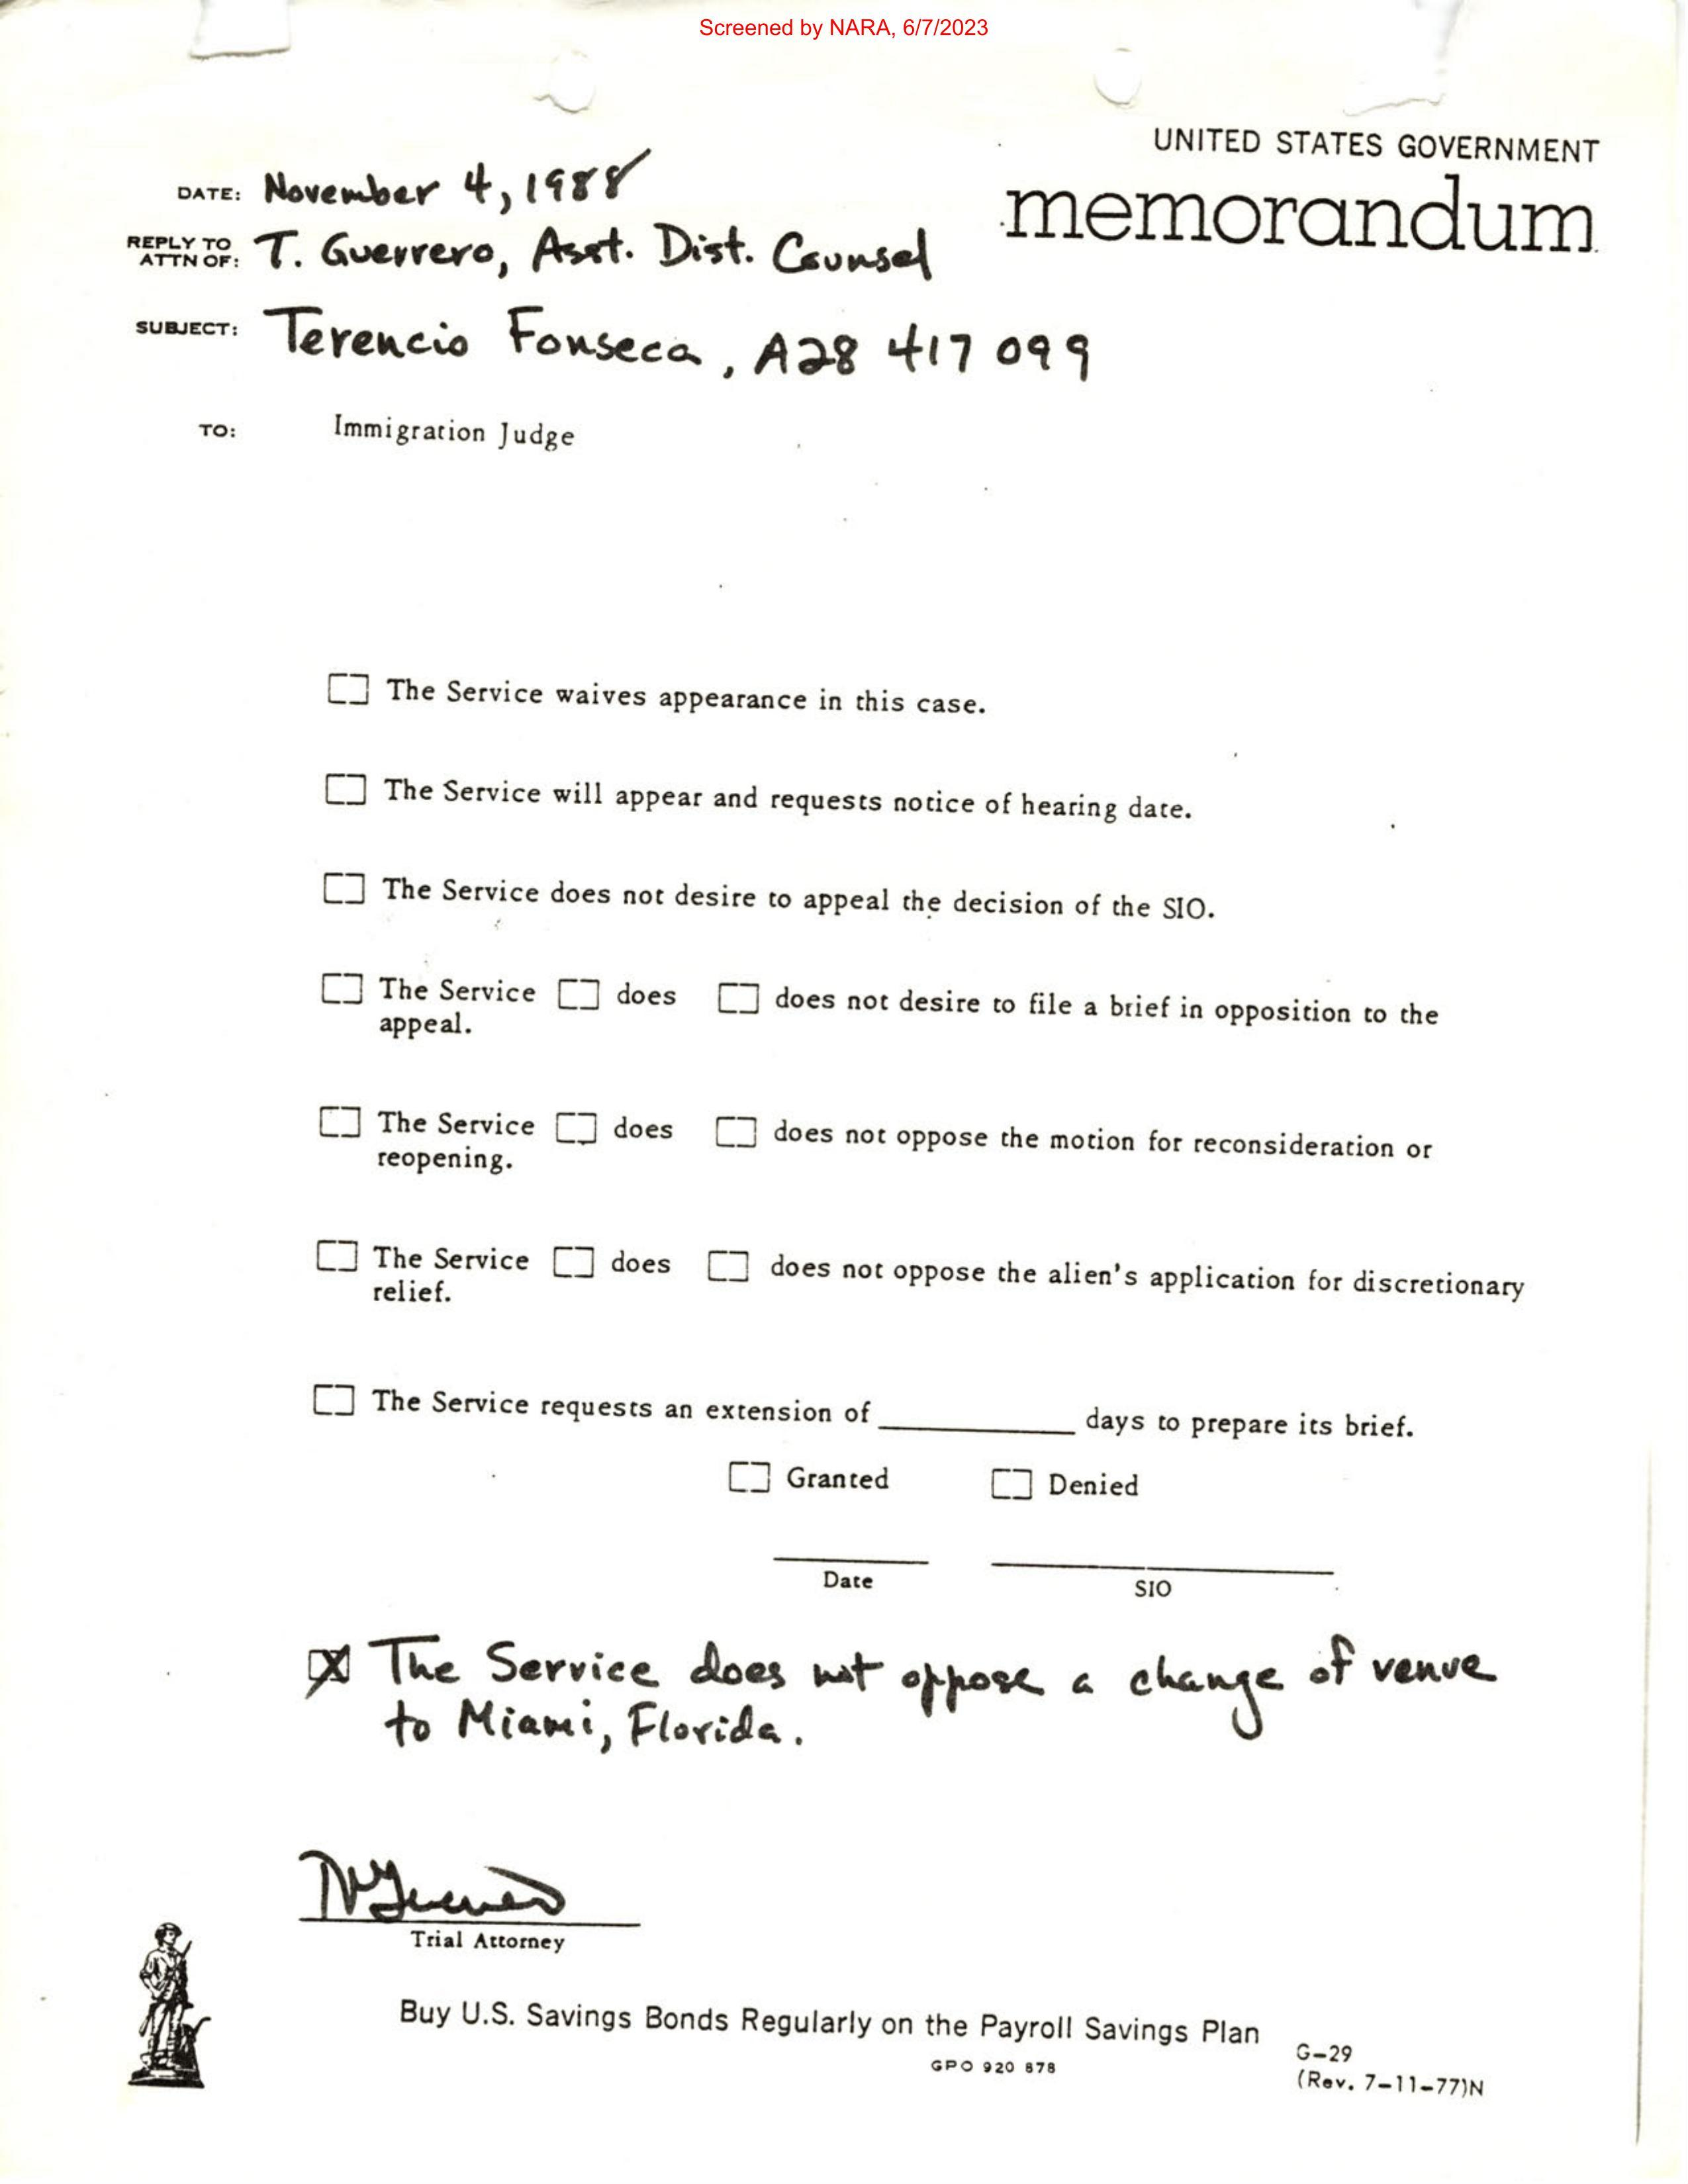 Screened by NARA, 6/7/2023
UNITED STATES GOVERNMENT
memorandum
DATE: November 4, 1988
REPLY TO
ATTN OF: T. Guerrero, Asst. Dist. Counsel
SUBJECT: Terencio Fonseca, A28 417 099
TO: Immigration Judge
The Service waives appearance in this case.
The Service will appear and requests notice of hearing date.
The Service does not desire to appeal the decision of the SIO.
The Service does does not desire to file a brief in opposition to the
appeal.
The Service does does not oppose the motion for reconsideration or
reopening.
The Service does does not oppose the alien's application for discretionary
relief.
The Service requests an extension of days to prepare its brief.
Granted Denied
Date SIO
X The Service does not oppose a change of venue
to Miami, Florida.
Trial Attorney
Buy U.S. Savings Bonds Regularly on the Payroll Savings Plan
GPO 920 878
G-29
(Rev. 7-11-77)N